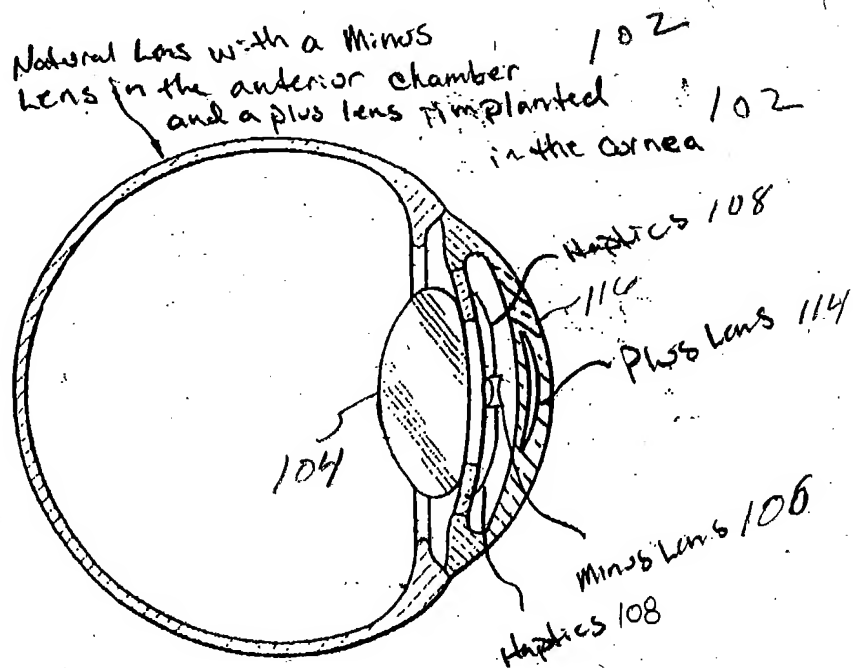 Natural Lens with a Minus 102
Lens in the anterior chamber
and a plus lens implanted 102
in the cornea
Haptics 108
116
Plus Lens 114
104
Minus Lens 106
Haptics 108